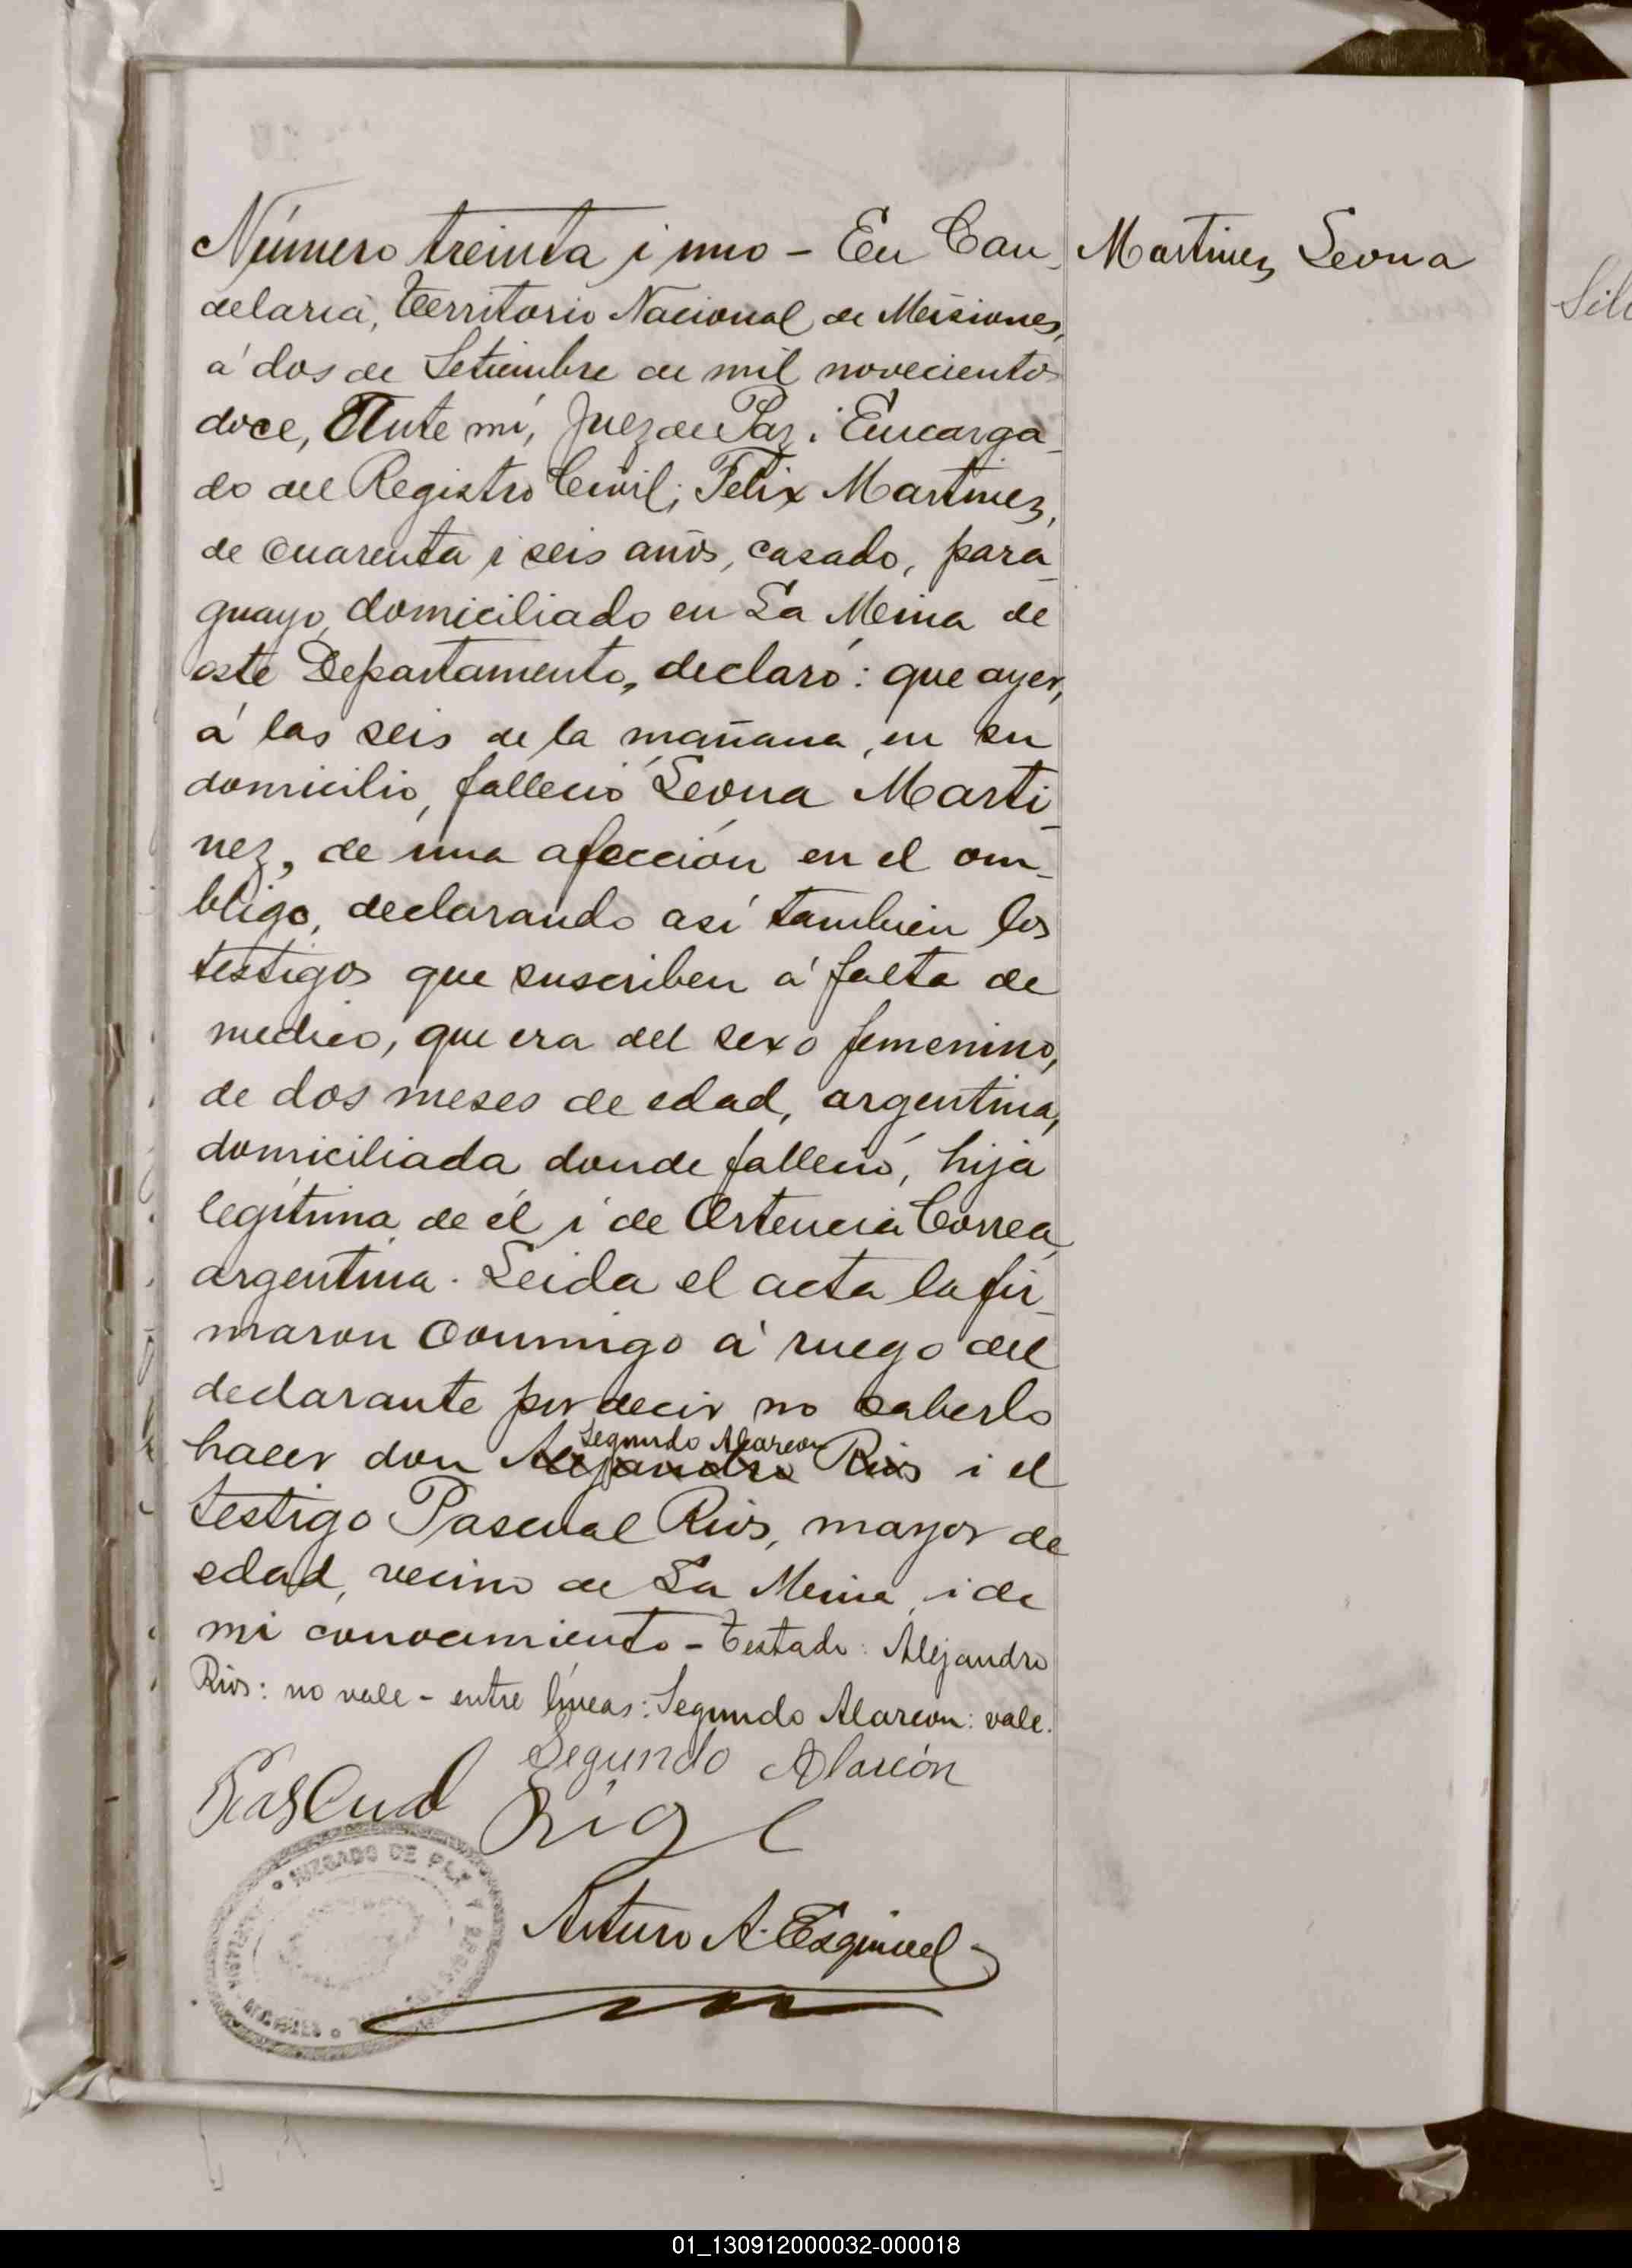 Número treinta i uno - En Can-
Martinez Leona
delaria, Territorio Nacional de Misiones,
á dos de Setiembre de mil novecientos
doce, Ante mí, Juez de Paz i Encarga-
do del Registro Civil; Felix Martinez,
de cuarenta i seis años, casado, para-
guayo, domiciliado en La Mina de
este Departamento, declaró: que ayer,
á las seis de la mañana, en su
domicilio, falleció Leona Marti-
nez, de una afección en el om-
bligo, declarando así tambien los
testigos que suscriben á falta de
medico, que era del sexo femenino,
de dos meses de edad, argentina,
domiciliada donde falleció, hija
legítima de él i de Ortencia Correa,
argentina. Leida el acta la fir-
maron conmigo á ruego del
declarante por decir no saberlo
Segundo Alarcon
hacer don Alejandro Rios i el
testigo Pascual Rios, mayor de
edad, vecino de La Mina, i de
mi conocimiento - Testado: Alejandro
Rios: no vale - entre líneas: Segundo Alarcon: vale.
Segundo Alarcón
Pascual
Arturo A. Esquivel
JUZGADO DE PAZ Y REGISTRO CIVIL
01_130912000032-000018